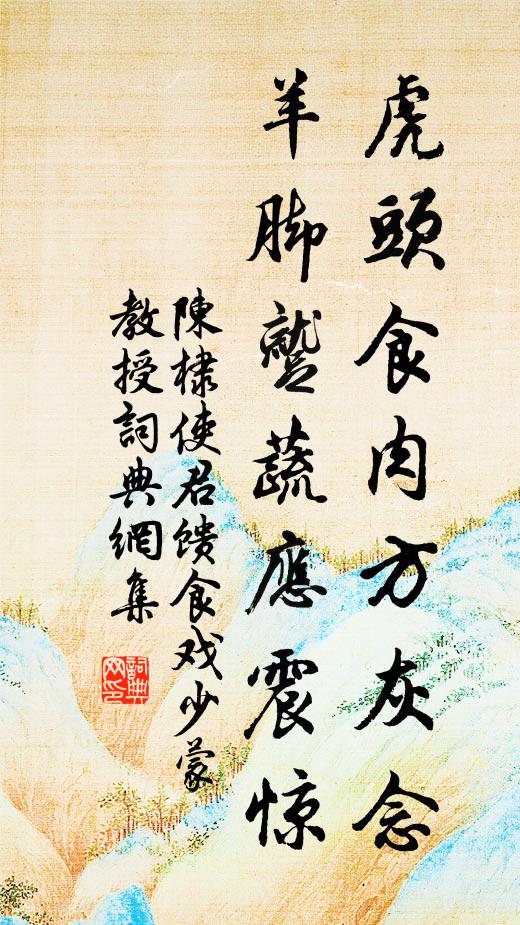 虎頭食肉方灰念
羊脚蹔蔬應震惊
陳棣使君馈食戏少蒙
教授詞典網集
詞典网印